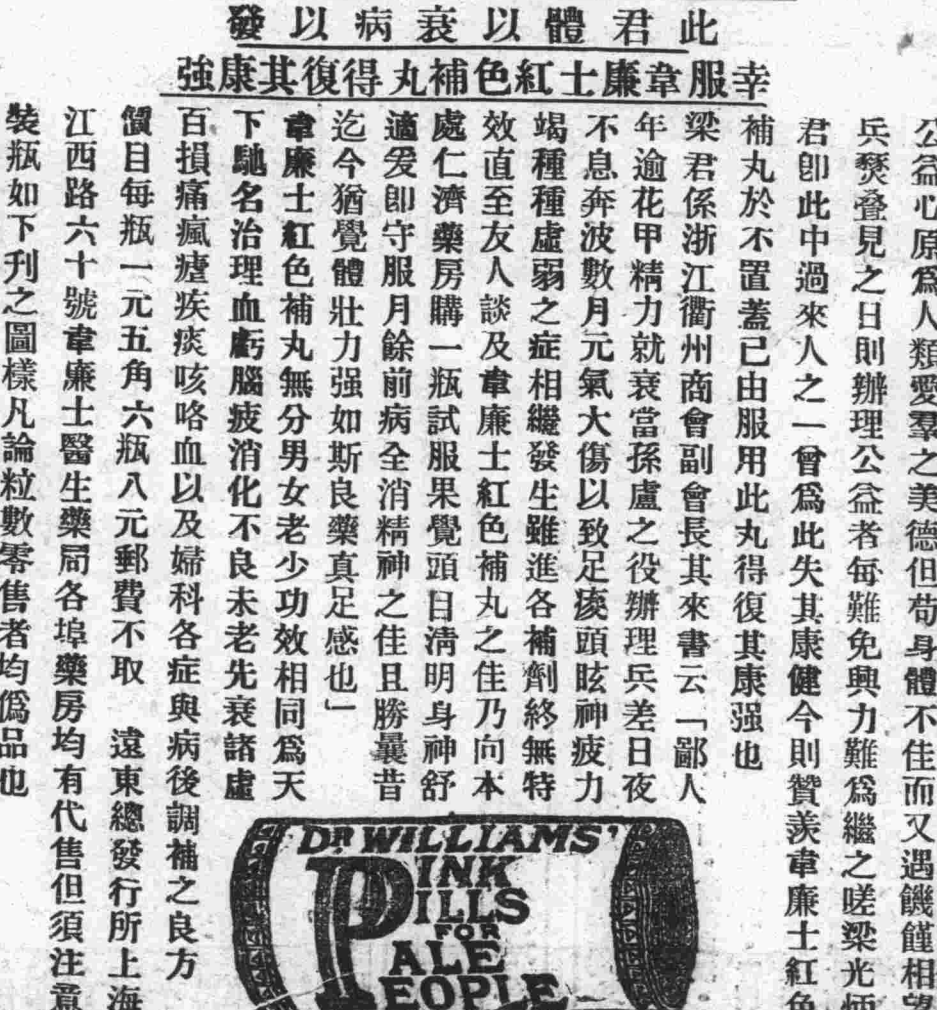 此君體以衰病以發
幸服韋廉士紅色補丸得復其康強
公益心原爲人類愛羣之美德但苟身體不佳而又遇饑饉相望
兵燹叠見之日則辦理公益者每難免興力難爲繼之嗟梁光炳
君卽此中過來人之一曾爲此失其康健今則贊羨韋廉士紅色
補丸於不置蓋己由服用此丸得復其康强也
梁君係浙江衢州商會副會長其來書云「鄙人
年逾花甲精力就衰當孫盧之役辦理兵差日夜
不息奔波數月元氣大傷以致足痠頭眩神疲力
竭種種虛弱之症相繼發生雖進各補劑終無特
效直至友人談及韋廉士紅色補丸之佳乃向本
處仁濟藥房購一瓶試服果覺頭目淸明身神舒
適爰卽守服月餘前病全消精神之佳且勝曩昔
迄今猶覺體壯力强如斯良藥真足感也」
韋廉士紅色補丸無分男女老少功效相同爲天
下馳名治理血虧腦疲消化不良未老先衰諸虛
百損痛瘋瘧疾痰咳咯血以及婦科各症與病後調補之良方
價目每瓶一元五角六瓶八元郵費不取 遠東總發行所上海
江西路六十號韋廉士醫生藥局各埠藥房均有代售但須注意
裝瓶如下刊之圖樣凡論粒數零售者均僞品也
DR WILLIAMS'
PINK
PILLS
FOR
PALE
PEOPLE